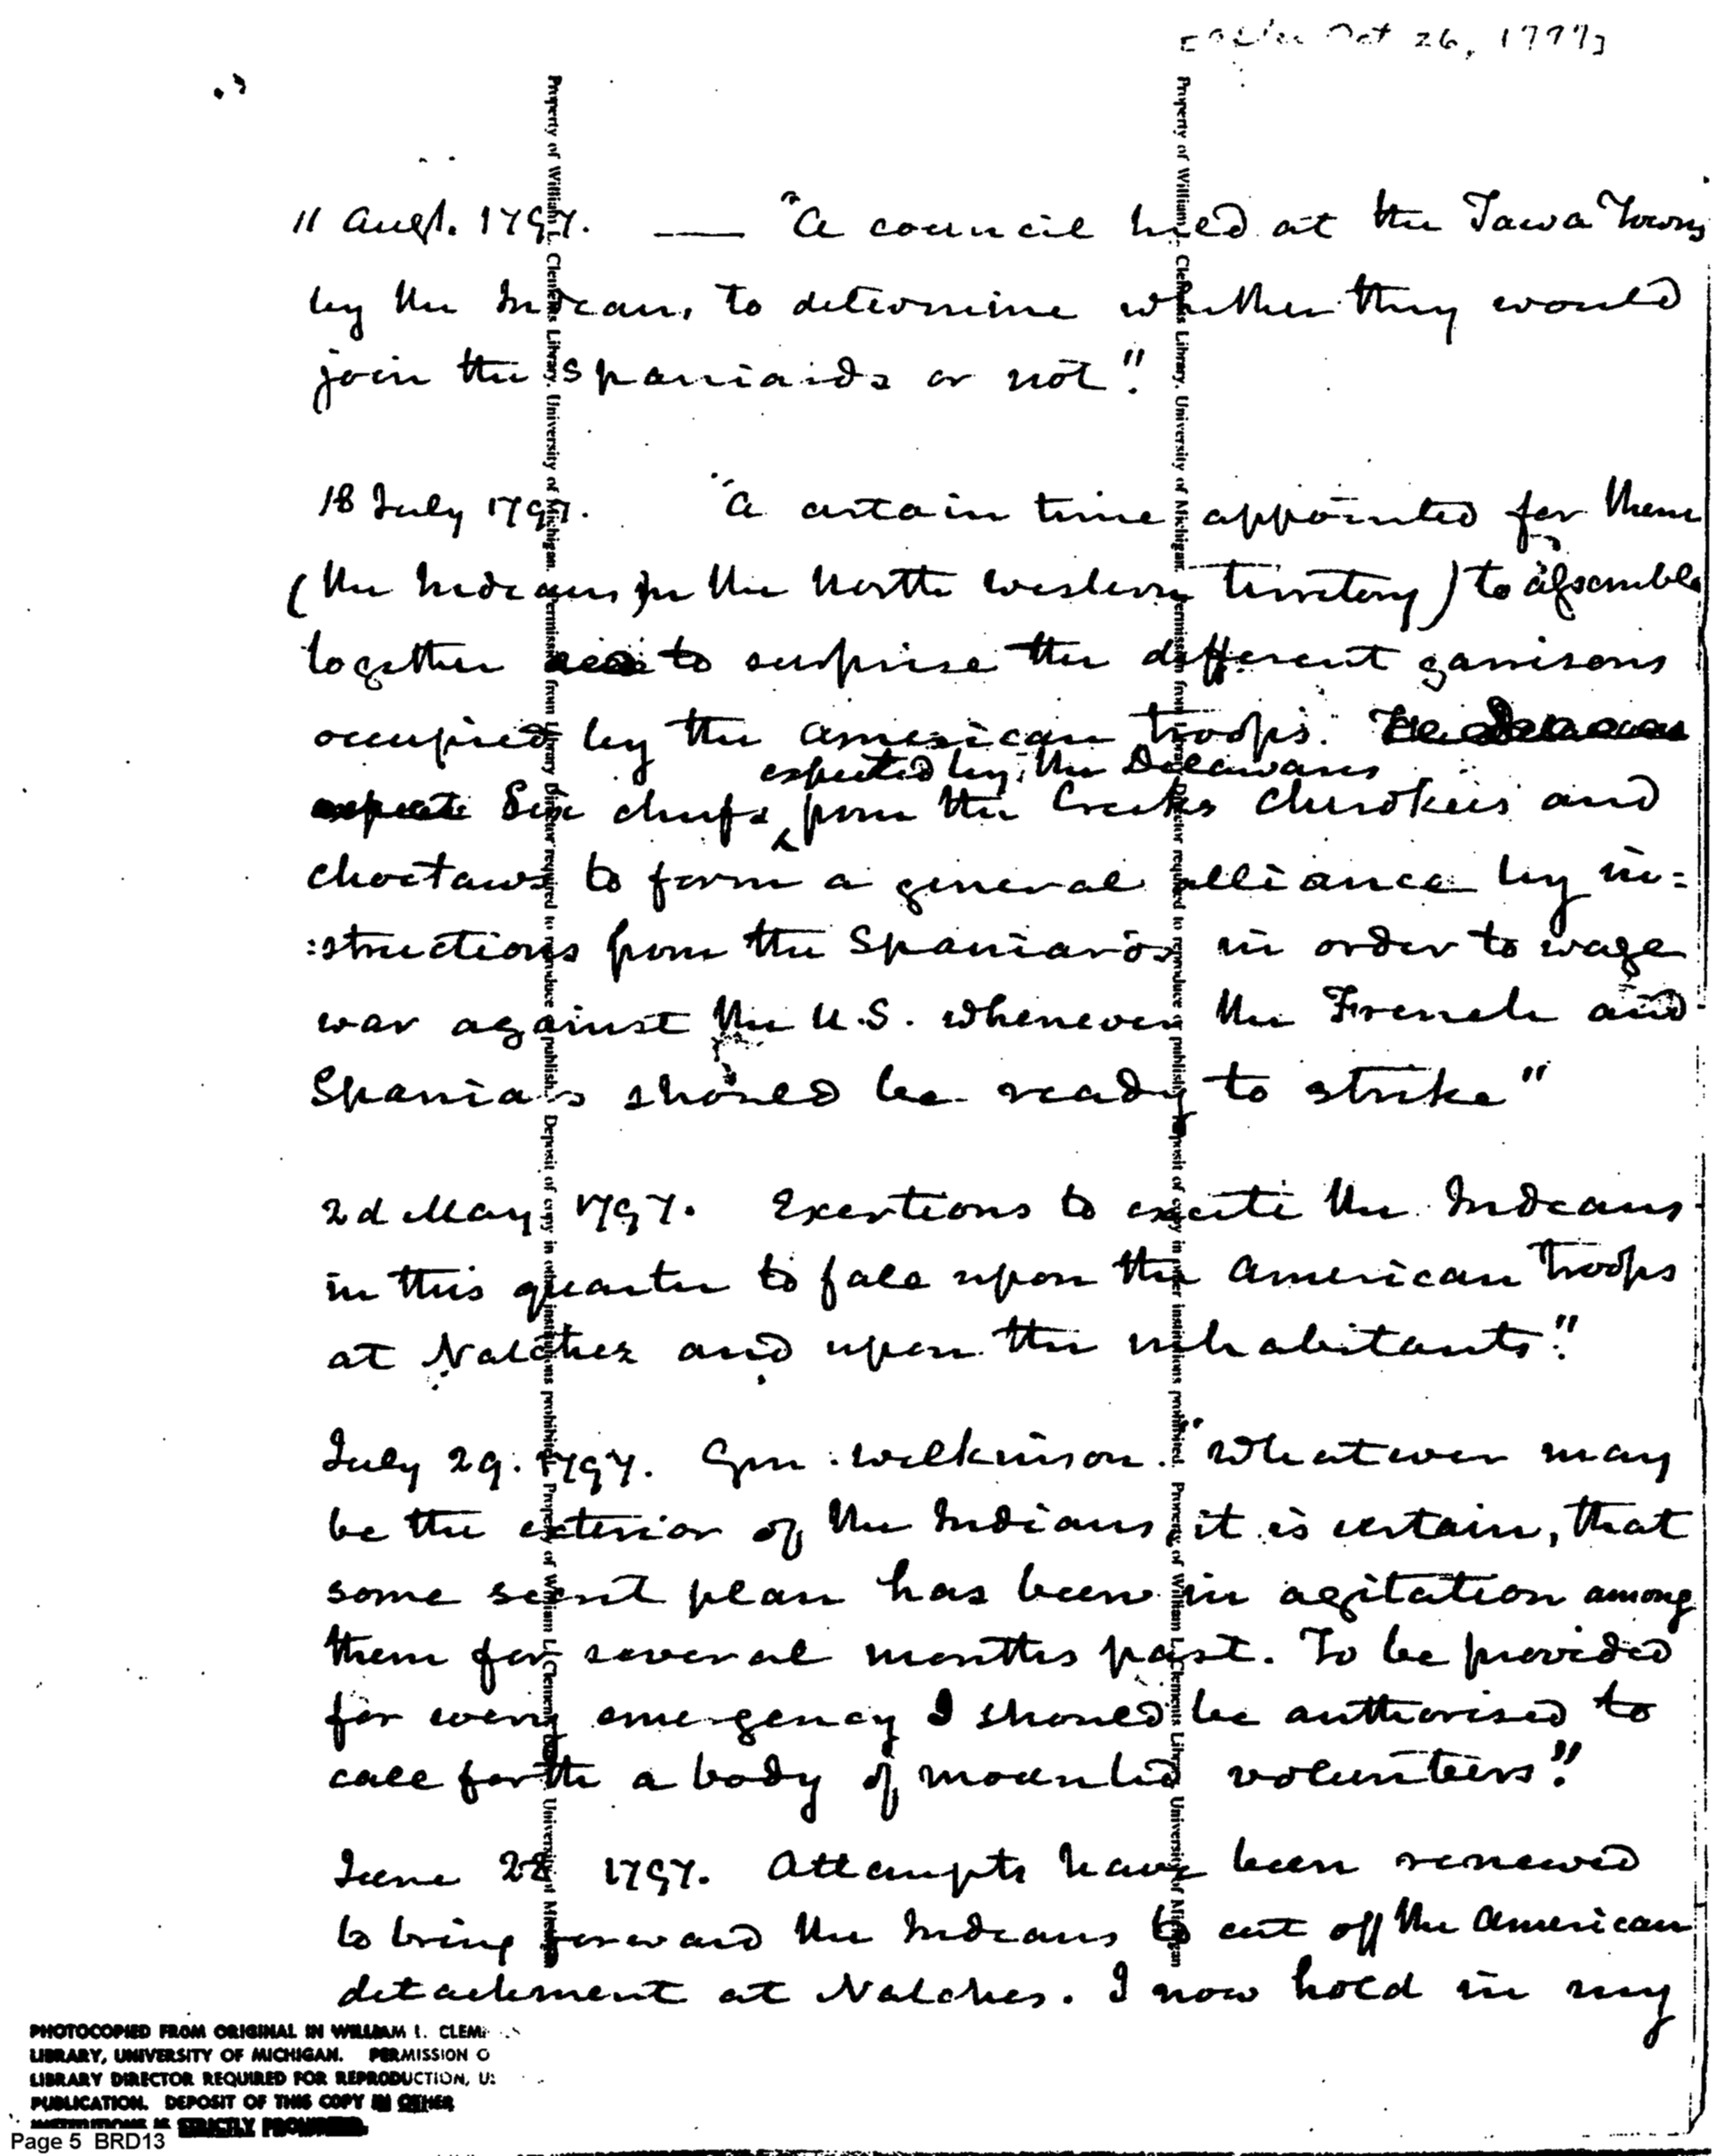 [after Oct 26, 1797]
11 Augt. 1797. — "A council held at the Tawa Towns
by the Indians, to determine whether they would
join the Spaniards or not."
18 July 1797. "A certain time appointed for them
(the Indians in the North western territory) to assemble
together to surprise the different garrisons
occupied by the American troops. The Delawares
expected by the Delawares
expect Six chiefs from the Creeks Cherokees and
Choctaws to form a general alliance by in=
:structions from the Spaniards in order to wage
war against the U.S. whenever the French and
Spaniads should be ready to strike"
2d May 1797. Exertions to excite the Indians
in this quarter to fall upon the American troops
at Natchez and upon the inhabitants."
July 29. 1797. Gen: Wilkinson. "Whatever may
be the exterior of the Indians, it is certain, that
some secret plan has been in agitation among
them for several months past. To be provided
for every emergency I should be authorised to
call forth a body of mounted volunteers."
June 28 1797. Attempts have been renewed
to bring forward the Indians to cut off the American
detachment at Natches. I now hold in my
Property of William L. Clements Library, University of Michigan. Permission from Library Director required to reproduce publish. Deposit of copy in other institutions prohibited. Property of William L. Clements Library University of Michigan
Property of William L. Clements Library, University of Michigan. Permission from Library Director required to reproduce publish. Deposit of copy in other institutions prohibited. Property of William L. Clements Library University of Michigan
PHOTOCOPIED FROM ORIGINAL IN WILLIAM L. CLEM
LIBRARY, UNIVERSITY OF MICHIGAN. PERMISSION O
LIBRARY DIRECTOR REQUIRED FOR REPRODUCTION, U
PUBLICATION. DEPOSIT OF THIS COPY IN OTHER
INSTITUTIONS IS STRICTLY PROHIBITED.
Page 5 BRD13